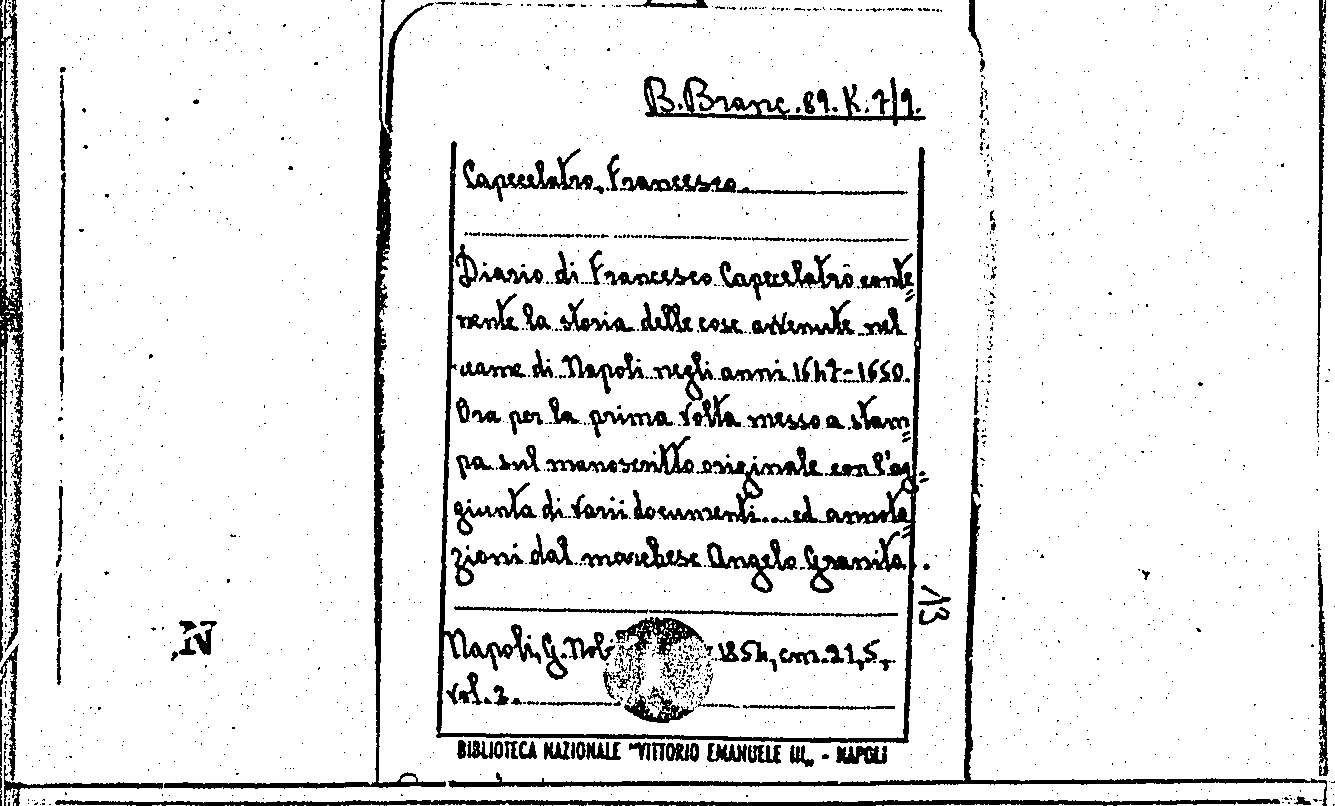 B.Branc.89.K.7/9.
Capecelatro, Francesco.
Diario di Francesco Capecelatro conte=
nente la storia delle cose avvenute nel
reame di Napoli negli anni 1647-1650.
Ora per la prima volta messo a stam=
pa sul manoscritto originale con l'ag=
giunta di varii documenti....ed annota=
zioni dal marchese Angelo Granita..
13
Napoli, G. Nobi 1854, cm.21,5,
vol.2.
BIBLIOTECA NAZIONALE "VITTORIO EMANUELE III„ - NAPOLI
N